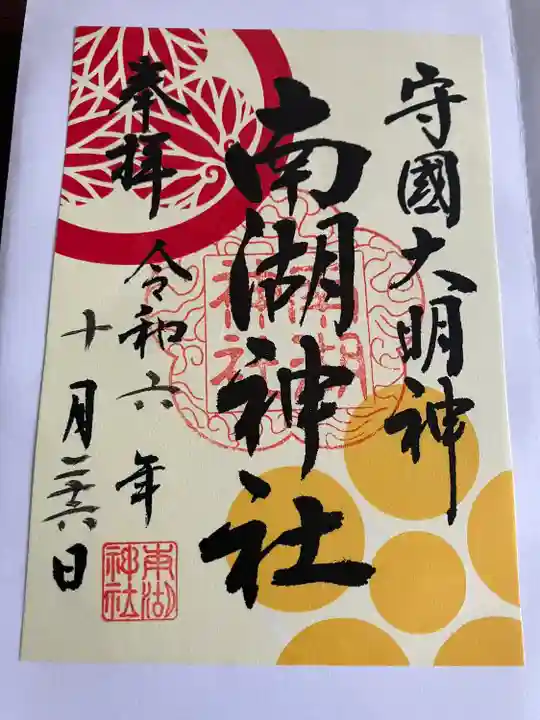 守國大明神
南湖神社
奉拝
令和六年
十月二十六日
南湖神社
南湖神社